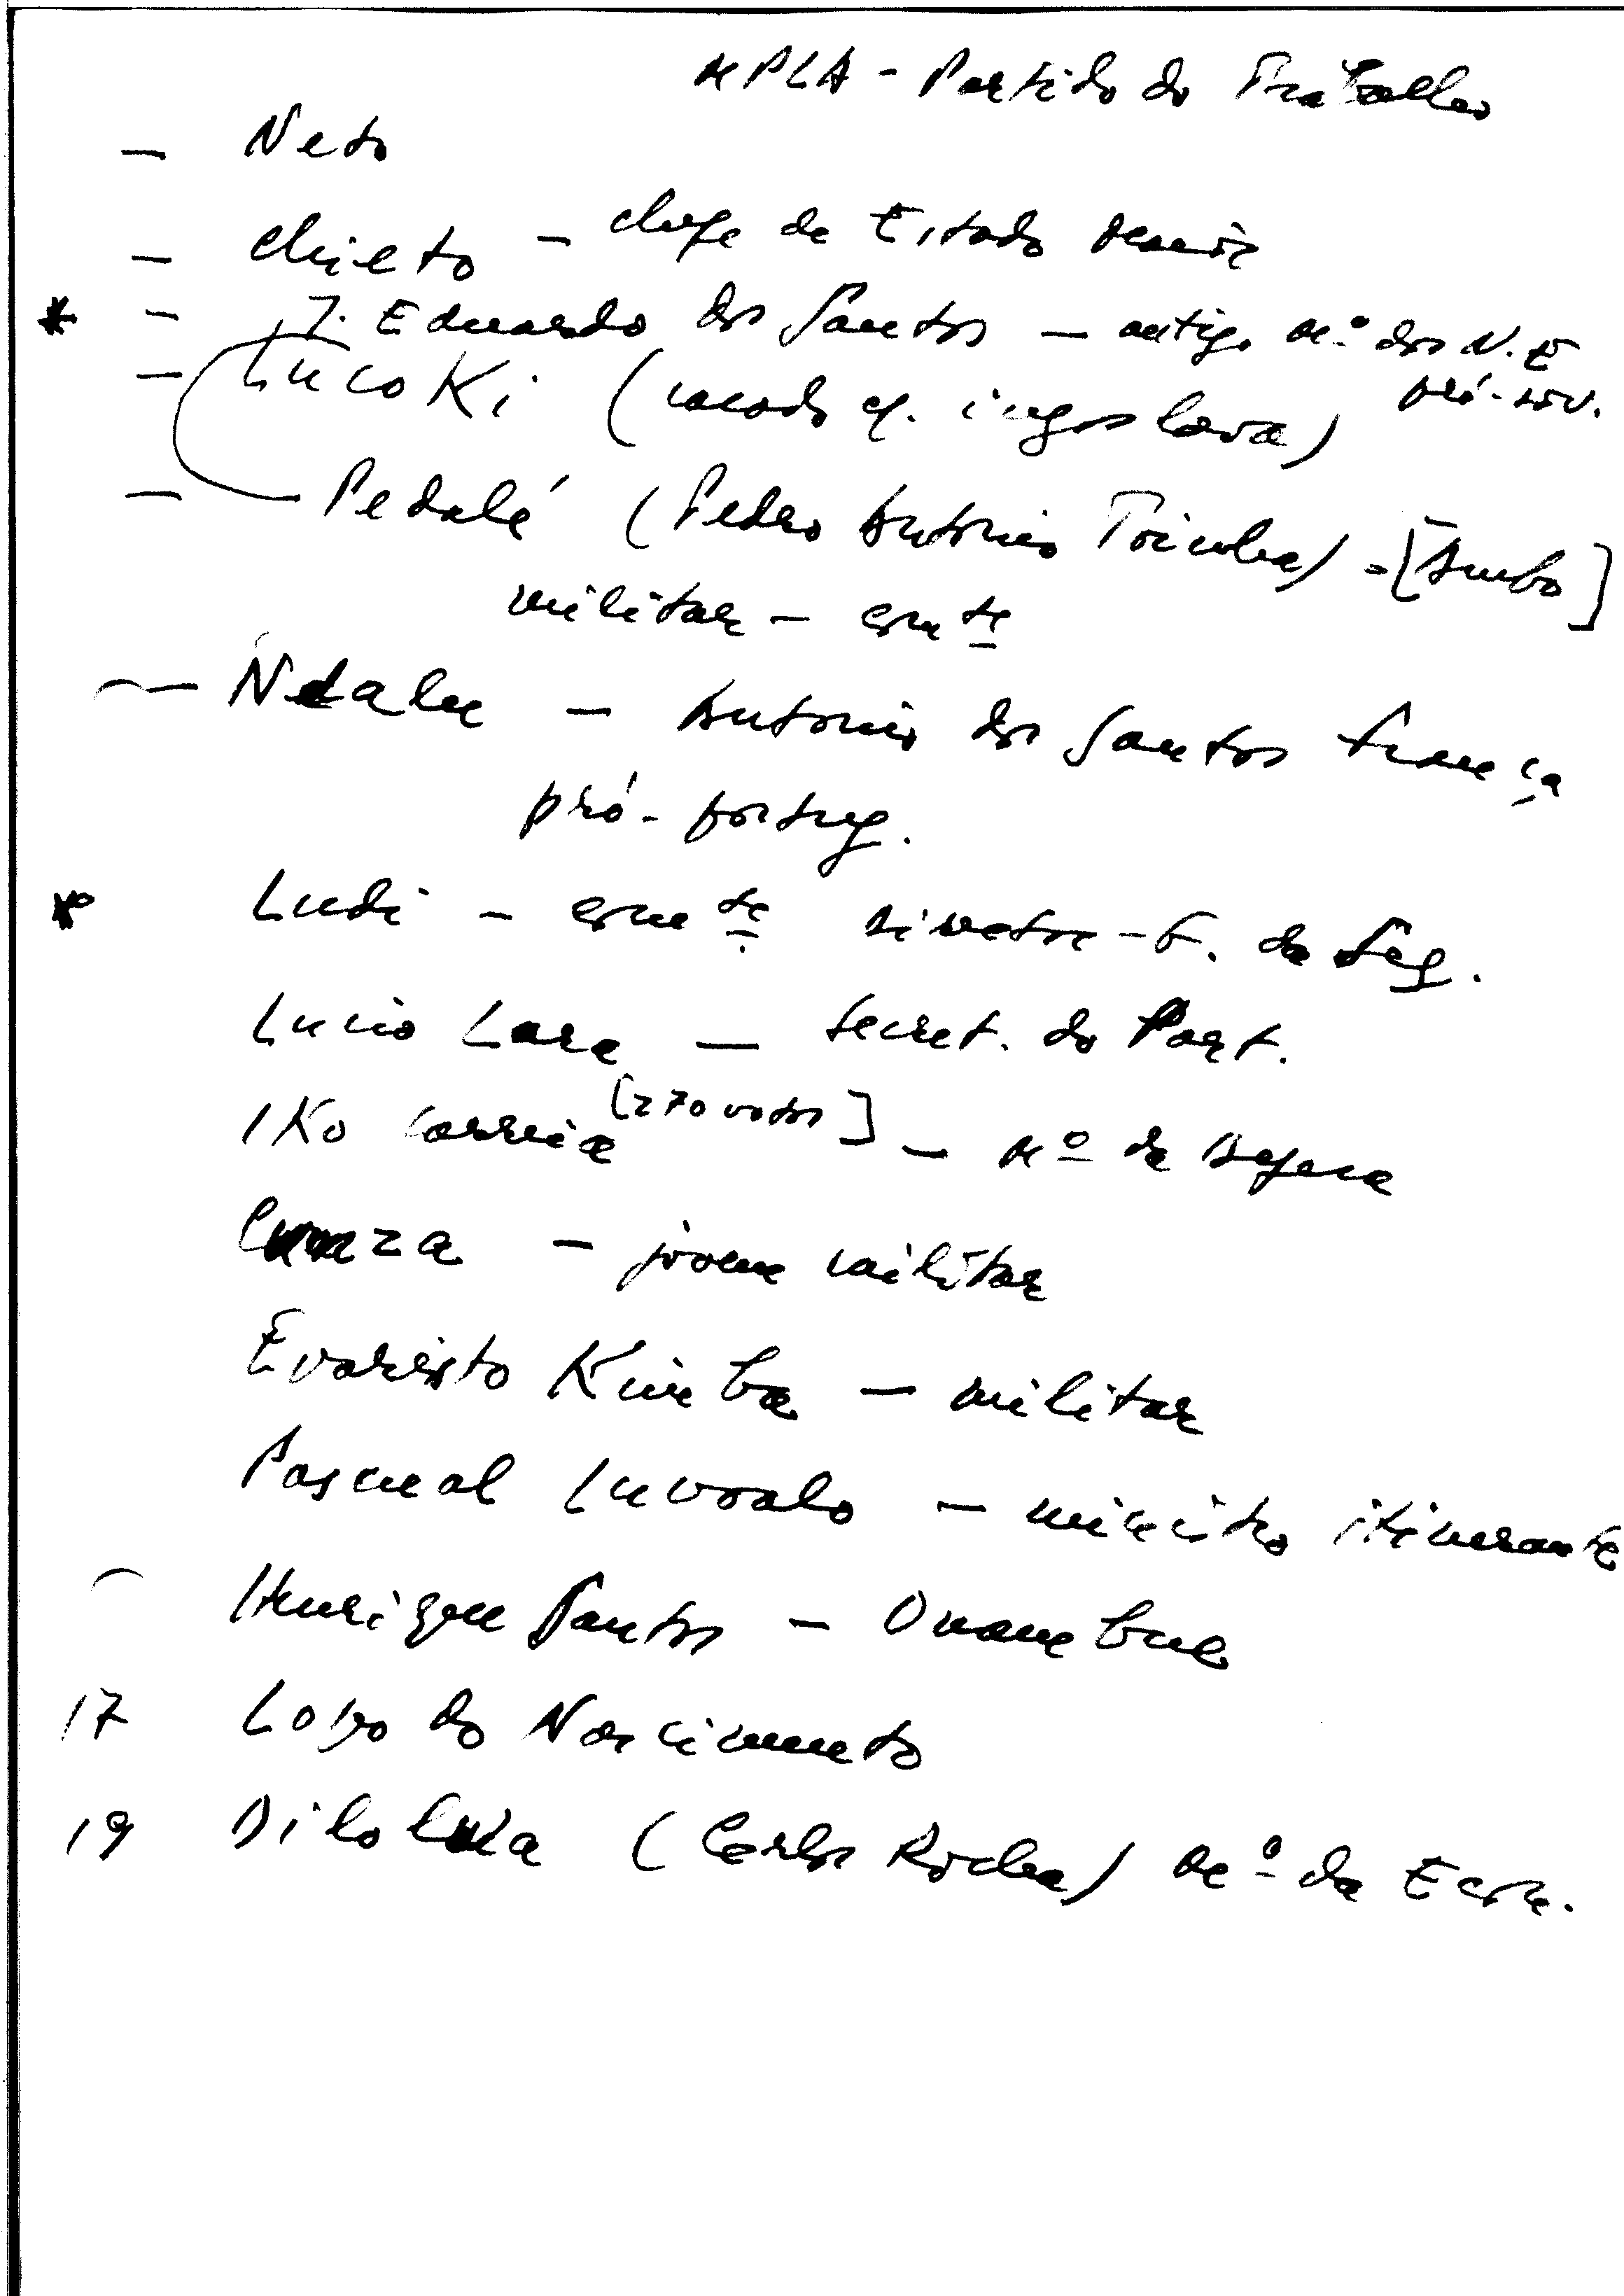 MPLA - Partido do Trabalho
- Neto
- Chieto - chefe de Estado Maior
* - J. Eduardo dos Santos - antigo M.º dos N. E
pró-sov.
- Lucoki (casado c/. iugoslava)
- Pedalé (Pedro António Toinha) - [
militar - com te
- Ndalu - António dos Santos França
pró-portug.
* Ludi - com te Director - G. da Seg.
Lucio Lara - Secret. do Part.
[270 votos]
IKo Carreira - Mº da Defesa
- jovem militar
Evaristo Kimba - militar
Pascual Luvualo - ministro itinerante
Henrique Santos - Onambue
17 Lopo do Nascimento
19 Dilolwa (Carlos Rocha) Mº da Econ.